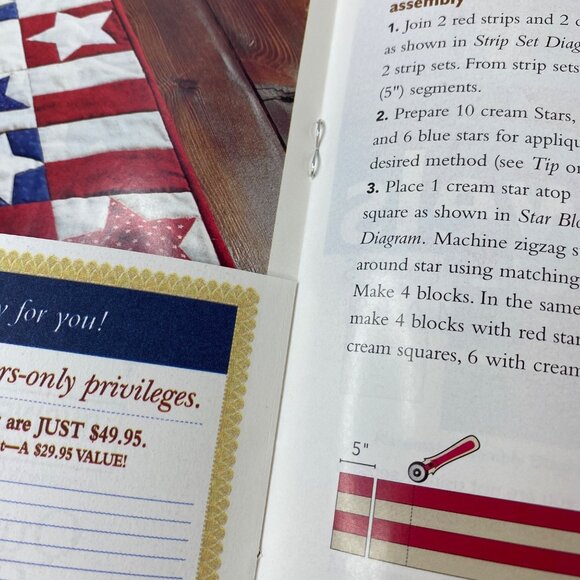 y for you!
rs-only privileges.
are JUST $49.95.
t—A $29.95 VALUE!
assembly
1. Join 2 red strips and 2 c
as shown in Strip Set Diag
2 strip sets. From strip sets
(5") segments.
2. Prepare 10 cream Stars,
and 6 blue stars for appliqu
desired method (see Tip o
3. Place 1 cream star atop
square as shown in Star Blo
Diagram. Machine zigzag s
around star using matching
Make 4 blocks. In the same
make 4 blocks with red star
cream squares, 6 with cream
5"